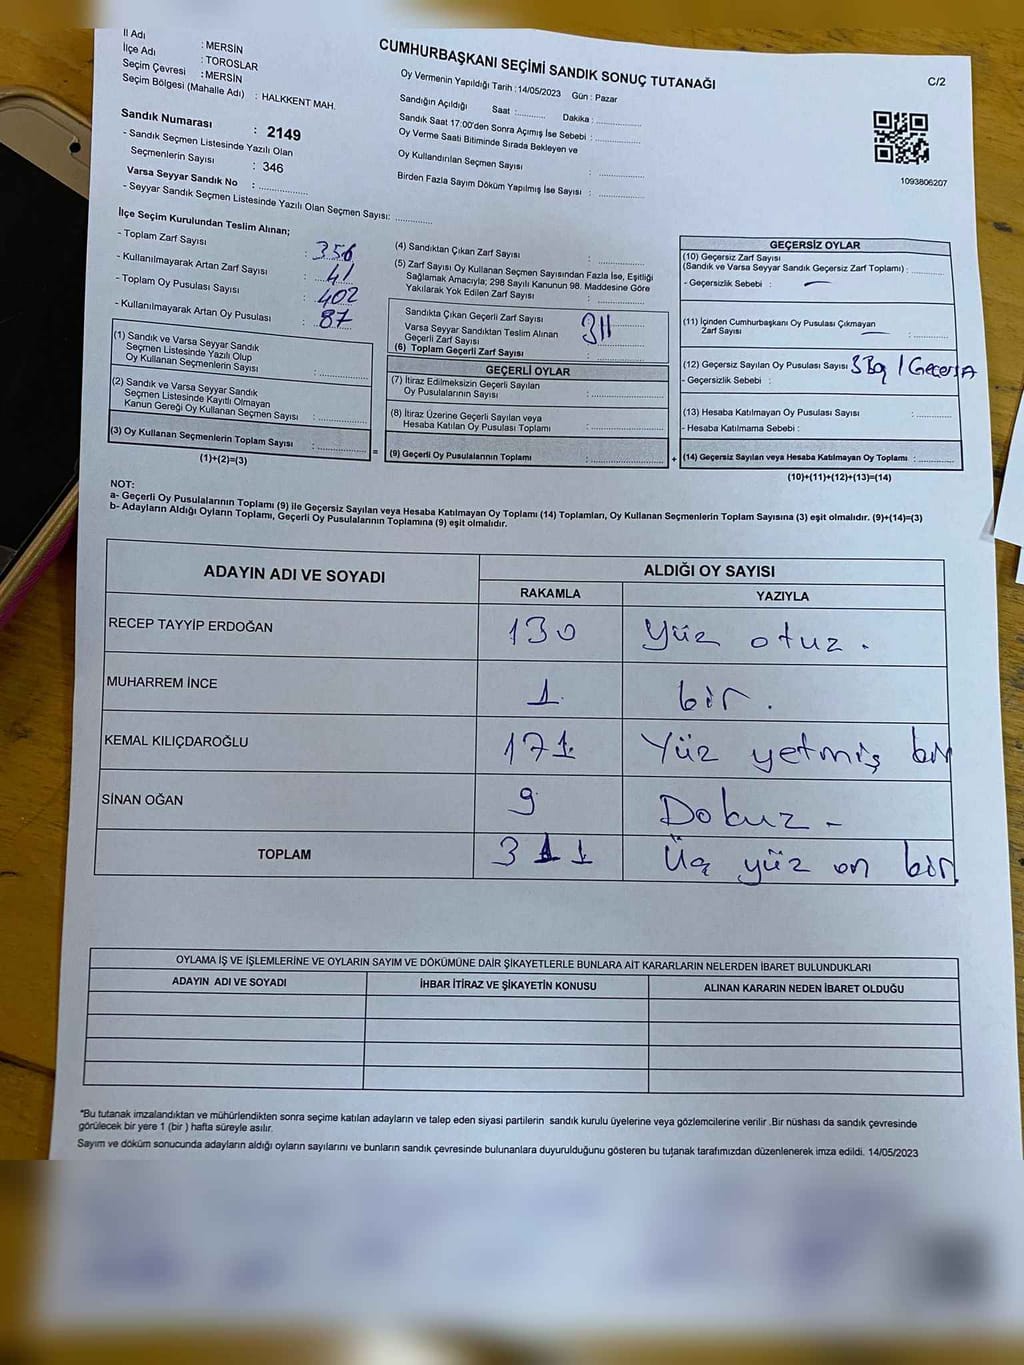 İl Adı : MERSİN
İlçe Adı : TOROSLAR
Seçim Çevresi : MERSİN
Seçim Bölgesi (Mahalle Adı) : HALKKENT MAH.
Sandık Numarası : 2149
- Sandık Seçmen Listesinde Yazılı Olan
Seçmenlerin Sayısı : 346
Varsa Seyyar Sandık No : ..............
- Seyyar Sandık Seçmen Listesinde Yazılı Olan Seçmen Sayısı: ..............
CUMHURBAŞKANI SEÇİMİ SANDIK SONUÇ TUTANAĞI
Oy Vermenin Yapıldığı Tarih : 14/05/2023 Gün : Pazar
Sandığın Açıldığı Saat : ........... Dakika : ..............
Sandık Saat 17:00'den Sonra Açımış İse Sebebi : ..............
Oy Verme Saati Bitiminde Sırada Bekleyen ve
Oy Kullandırılan Seçmen Sayısı : ..............
Birden Fazla Sayım Döküm Yapılmış İse Sayısı : ..............
C/2
1093806207
İlçe Seçim Kurulundan Teslim Alınan;
- Toplam Zarf Sayısı : 356
- Kullanılmayarak Artan Zarf Sayısı : 41
- Toplam Oy Pusulası Sayısı : 402
- Kullanılmayarak Artan Oy Pusulası : 87
(1) Sandık ve Varsa Seyyar Sandık
Seçmen Listesinde Yazılı Olup
Oy Kullanan Seçmenlerin Sayısı : ..............
(2) Sandık ve Varsa Seyyar Sandık
Seçmen Listesinde Kayıtlı Olmayan
Kanun Gereği Oy Kullanan Seçmen Sayısı : ..............
(3) Oy Kullanan Seçmenlerin Toplam Sayısı : ..............
(1)+(2)=(3)
(4) Sandıktan Çıkan Zarf Sayısı : ..............
(5) Zarf Sayısı Oy Kullanan Seçmen Sayısından Fazla İse, Eşitliği
Sağlamak Amacıyla; 298 Sayılı Kanunun 98. Maddesine Göre
Yakılarak Yok Edilen Zarf Sayısı : ..............
Sandıkta Çıkan Geçerli Zarf Sayısı 311
Varsa Seyyar Sandıktan Teslim Alınan
Geçerli Zarf Sayısı
(6) Toplam Geçerli Zarf Sayısı : ..............
GEÇERLİ OYLAR
(7) İtiraz Edilmeksizin Geçerli Sayılan
Oy Pusulalarının Sayısı : ..............
(8) İtiraz Üzerine Geçerli Sayılan veya
Hesaba Katılan Oy Pusulası Toplamı : ..............
= (9) Geçerli Oy Pusulalarının Toplamı : ..............
GEÇERSİZ OYLAR
(10) Geçersiz Zarf Sayısı
(Sandık ve Varsa Seyyar Sandık Geçersiz Zarf Toplamı) : ..............
- Geçersizlik Sebebi : —
(11) İçinden Cumhurbaşkanı Oy Pusulası Çıkmayan
Zarf Sayısı : ..............
(12) Geçersiz Sayılan Oy Pusulası Sayısı 3
- Geçersizlik Sebebi :
(13) Hesaba Katılmayan Oy Pusulası Sayısı : ..............
- Hesaba Katılmama Sebebi :
+ (14) Geçersiz Sayılan veya Hesaba Katılmayan Oy Toplamı : ..............
(10)+(11)+(12)+(13)=(14)
NOT:
a- Geçerli Oy Pusulalarının Toplamı (9) ile Geçersiz Sayılan veya Hesaba Katılmayan Oy Toplamı (14) Toplamları, Oy Kullanan Seçmenlerin Toplam Sayısına (3) eşit olmalıdır. (9)+(14)=(3)
b- Adayların Aldığı Oyların Toplamı, Geçerli Oy Pusulalarının Toplamına (9) eşit olmalıdır.
ADAYIN ADI VE SOYADI ALDIĞI OY SAYISI
RAKAMLA YAZIYLA
RECEP TAYYİP ERDOĞAN 130 Yüz otuz.
MUHARREM İNCE 1. bir.
KEMAL KILIÇDAROĞLU 171 Yüz yetmiş bir
SİNAN OĞAN 9 Dokuz -
TOPLAM 311 Üç yüz on bir.
OYLAMA İŞ VE İŞLEMLERİNE VE OYLARIN SAYIM VE DÖKÜMÜNE DAİR ŞİKAYETLERLE BUNLARA AİT KARARLARIN NELERDEN İBARET BULUNDUKLARI
ADAYIN ADI VE SOYADI İHBAR İTİRAZ VE ŞİKAYETİN KONUSU ALINAN KARARIN NEDEN İBARET OLDUĞU
"Bu tutanak imzalandıktan ve mühürlendikten sonra seçime katılan adayların ve talep eden siyasi partilerin sandık kurulu üyelerine veya gözlemcilerine verilir .Bir nüshası da sandık çevresinde
görülecek bir yere 1 (bir ) hafta süreyle asılır.
Sayım ve döküm sonucunda adayların aldığı oyların sayılarını ve bunların sandık çevresinde bulunanlara duyurulduğunu gösteren bu tutanak tarafımızdan düzenlenerek imza edildi. 14/05/2023